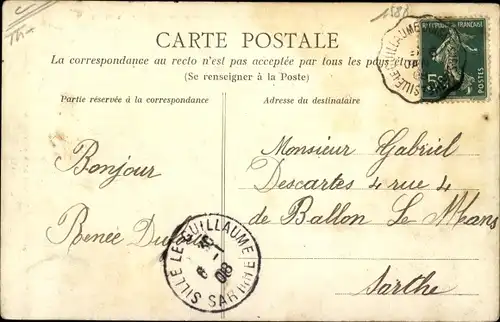 1580
CARTE POSTALE
La correspondance au recto n'est pas acceptée par tous les pays
(Se renseigner à la Poste)
Partie réservée à la correspondance
Adresse du destinataire
Bonjour
Renée
Monsieur Gabriel
Descartes 4 rue 4
de Ballon Le Mans
Sarthe
SILLE LE GUILLAUME
SARTHE
08
SILLE LE GUILLAUME
5c
POSTES